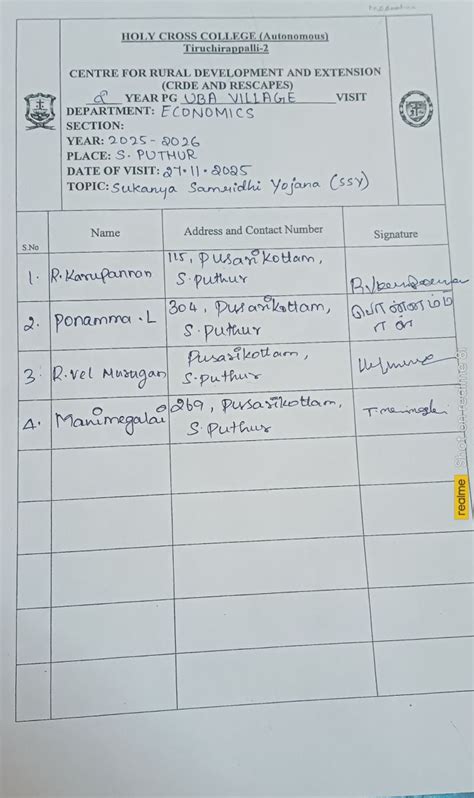 HOLY CROSS COLLEGE (Autonomous)
Tiruchirappalli-2
CENTRE FOR RURAL DEVELOPMENT AND EXTENSION
(CRDE AND RESCAPES)
YEAR PG UBA VILLAGE VISIT
DEPARTMENT: ECONOMICS
SECTION:
YEAR: 2025-2026
PLACE: S. PUTHUR
DATE OF VISIT: 27.11.2025
TOPIC: Sukanya Samridhi Yojana (SSY)
S.No Name Address and Contact Number Signature
1. R. Karuppannon 115, Pusarikottam,
S. puthur
2. Ponamma. L 304, Pusarikottam,
S. puthur
3. R. vel Murugan Pusarikottam,
S. puthur
4. Manimegalai 269, Pusarikottam,
S. Puthur
realme Shot on realme